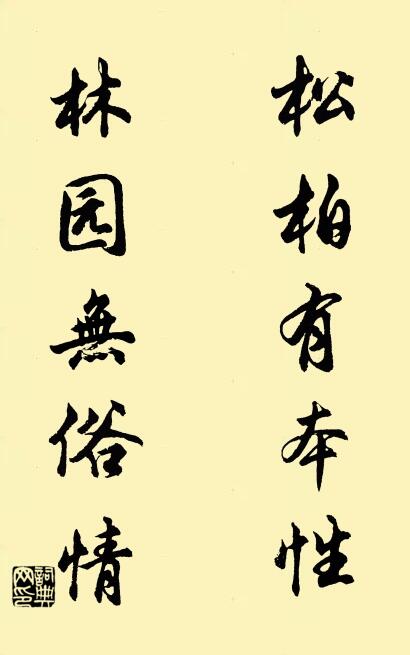 松柏有本性
林园無俗情
詞典网印